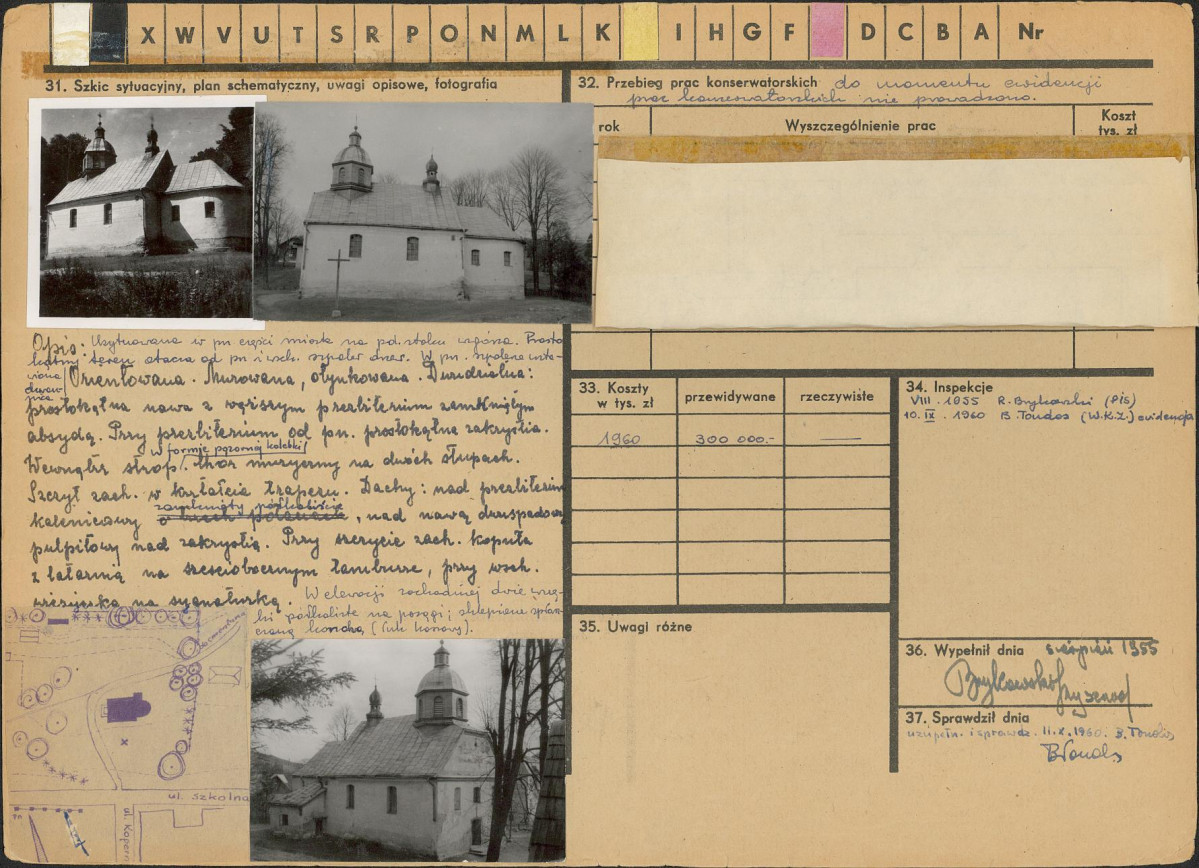 X W V U T S R P O N M L K I H G F D C B A Nr
31. Szkic sytuacyjny, plan schematyczny, uwagi opisowe, fotografia
Opis: Usytuowana w pn części miasta na pd. stoku wzgórza. Prosto
kątny teren otacza od pn. i wsch. szpaler drzew. W pn. szpalerze
Orientowana. Murowana, otynkowana. Dwudzielna:
prostokątna nawa z węższym prezbiterium zamkniętym
absydą. Przy prezbiterium od pn. prostokątna zakrystia.
w formie pozornej kolebki
Wewnątrz strop. Chór muzyczny na dwóch słupach.
Szczyt zach. w kształcie trapezu. Dachy: nad prezbiterium
zamknięty półkoliście
kalenicowy o trzech połaciach, nad nawą dwuspadowy
pulpitowy nad zakrystią. Przy szczycie zach. kopuła
z latarnią na sześciobocznym tamburze, przy wsch.
wieżyczka na sygnaturkę. W elewacji zachodniej dwie wnę-
ki półkoliste na posągi; sklepienie
konchą
ul. Szkolna
ul. Koper
32. Przebieg prac konserwatorskich do momentu ewidencji
prac konserwatorskich nie prowadzono.
rok
Wyszczególnienie prac
Koszt
tys. zł
33. Koszty
w tys. zł
przewidywane
rzeczywiste
1960
300 000.-
—
34. Inspekcje
VIII. 1955 R. Brykowski (PIS)
10. IX. 1960 B. Tondos (W.K.Z.) ewidencja
35. Uwagi różne
36. Wypełnił dnia sierpień 1955
Brykowski Ryszard
37. Sprawdził dnia
uzupełn. i sprawdz. 11.X.1960. B. Tondos
BTondos